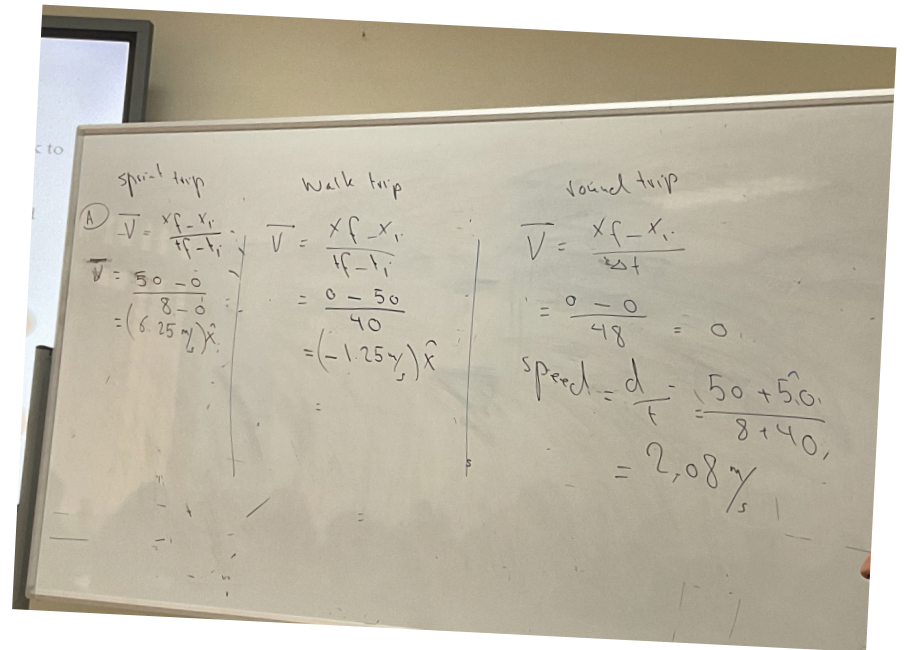 < to
sprint trip
A V̅ = xf - xi / tf - ti
V̅ = 50 - 0 / 8 - 0
= (6.25 m/s) x̂
walk trip
V̅ = xf - xi / tf - ti
= 0 - 50 / 40
= (-1.25 m/s) x̂
=
round trip
V̅ = xf - xi / Δt
= 0 - 0 / 48 = 0
speed = d / t = 50 + 50 / 8 + 40
= 2,08 m/s